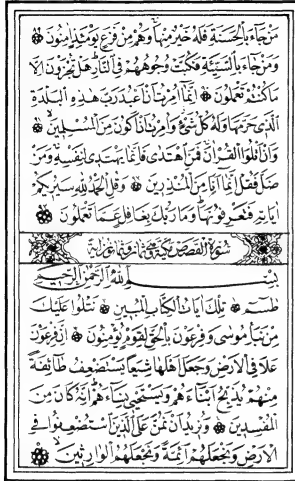 مَنْ جَاءَ بِالْحَسَنَةِ فَلَهُ خَيْرٌ مِنْهَا وَهُمْ مِنْ فَزَعٍ يَوْمَئِذٍ اٰمِنُونَ
وَمَنْ جَاءَ بِالسَّيِّئَةِ فَكُبَّتْ وُجُوهُهُمْ فِي النَّارِ هَلْ تُجْزَوْنَ اِلَّا
مَا كُنْتُمْ تَعْمَلُونَ اِنَّمَا اُمِرْتُ اَنْ اَعْبُدَ رَبَّ هٰذِهِ الْبَلْدَةِ
الَّذِي حَرَّمَهَا وَلَهُ كُلُّ شَيْءٍ وَاُمِرْتُ اَنْ اَكُونَ مِنَ الْمُسْلِمِينَ
وَاَنْ اَتْلُوَا الْقُرْاٰنَ فَمَنِ اهْتَدٰى فَاِنَّمَا يَهْتَدِي لِنَفْسِهِ وَمَنْ
ضَلَّ فَقُلْ اِنَّمَا اَنَا مِنَ الْمُنْذِرِينَ وَقُلِ الْحَمْدُ لِلّٰهِ سَيُرِيكُمْ
اٰيَاتِهِ فَتَعْرِفُونَهَا وَمَا رَبُّكَ بِغَافِلٍ عَمَّا تَعْمَلُونَ
سورة القصص مكية وهي ثمان وثمانون اية
بِسْمِ اللّٰهِ الرَّحْمٰنِ الرَّحِيمِ
طٰسٓمٓ تِلْكَ اٰيَاتُ الْكِتَابِ الْمُبِينِ نَتْلُوا عَلَيْكَ
مِنْ نَبَاِ مُوسٰى وَفِرْعَوْنَ بِالْحَقِّ لِقَوْمٍ يُؤْمِنُونَ اِنَّ فِرْعَوْنَ
عَلَا فِي الْاَرْضِ وَجَعَلَ اَهْلَهَا شِيَعًا يَسْتَضْعِفُ طَائِفَةً
مِنْهُمْ يُذَبِّحُ اَبْنَاءَهُمْ وَيَسْتَحْيِي نِسَاءَهُمْ اِنَّهُ كَانَ مِنَ
الْمُفْسِدِينَ وَنُرِيدُ اَنْ نَمُنَّ عَلَى الَّذِينَ اسْتُضْعِفُوا فِي
الْاَرْضِ وَنَجْعَلَهُمْ اَئِمَّةً وَنَجْعَلَهُمُ الْوَارِثِينَ